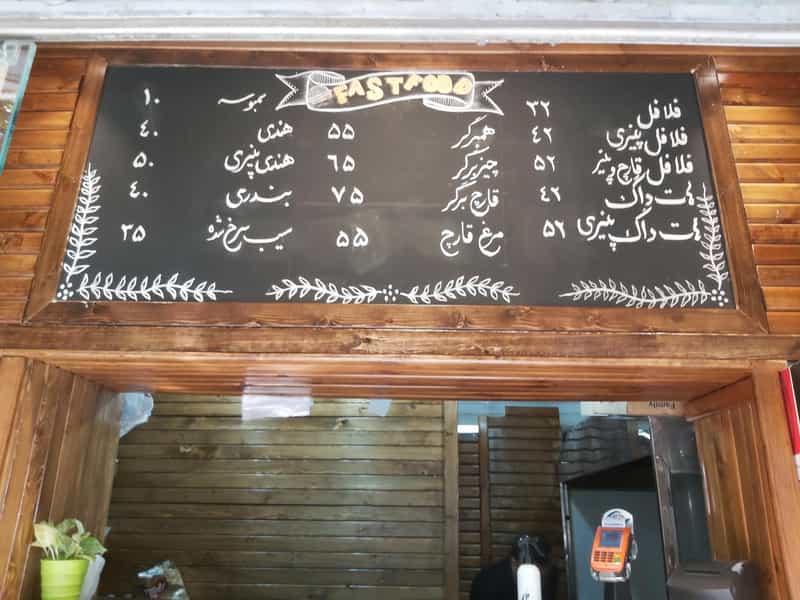 FAST FOOD
فلافل ۳۲
فلافل پنیری ۴۲
فلافل قارچ و پنیر ۵۲
هات داگ ۴۲
هات داگ پنیری ۵۲
همبرگر ۵۵
چیزبرگر ۶۵
قارچ برگر ۷۵
مرغ قارچ ۵۵
سمبوسه ۱۰
هندی ۴۰
هندی پنیری ۵۰
بندری ۴۰
سیب سرخ شده ۳۵
Family